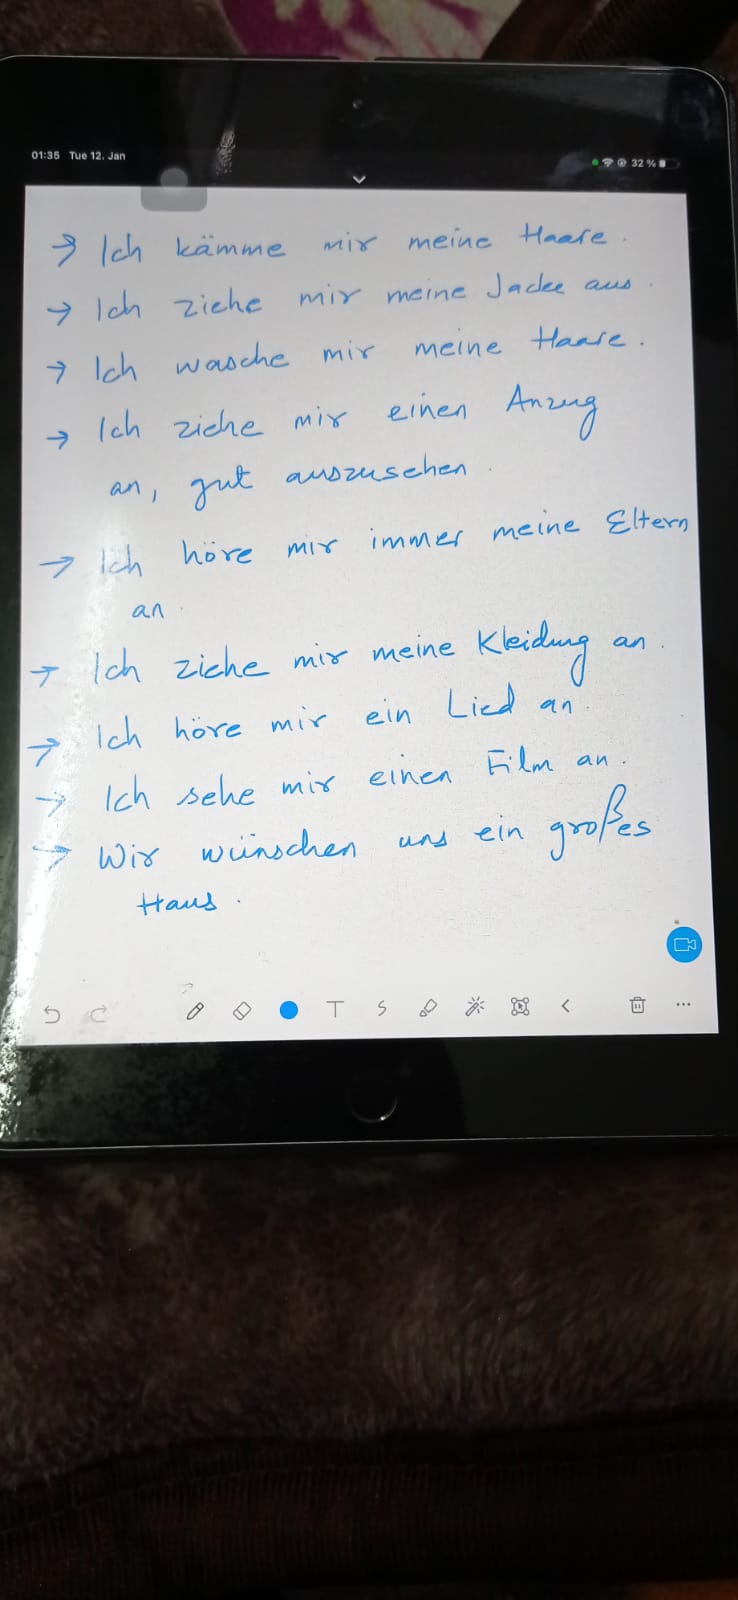 01:35 Tue 12. Jan 32 %
→ Ich kämme mir meine Haare.
→ Ich ziehe mir meine Jacke aus.
→ Ich wasche mir meine Haare.
→ Ich ziehe mir einen Anzug
an, gut auszusehen.
→ Ich höre mir immer meine Eltern
an.
→ Ich ziehe mir meine Kleidung an.
→ Ich höre mir ein Lied an.
→ Ich sehe mir einen Film an.
→ Wir wünschen uns ein großes
Haus.
T